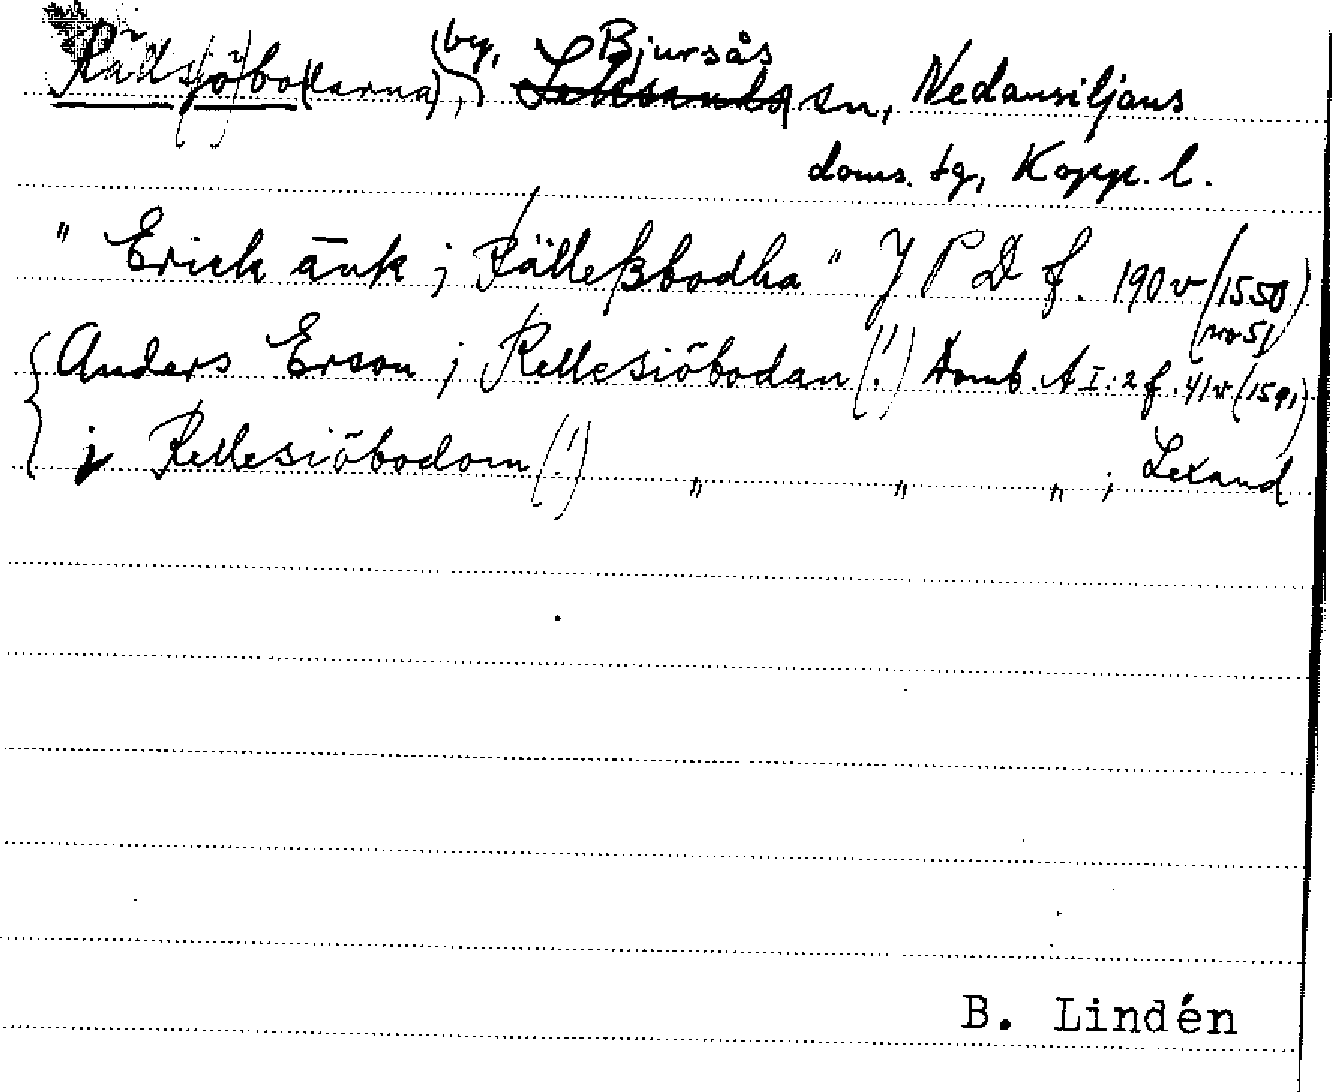 Rälls(jö)bo(darna), (by,) Bjursås
Leksands sn, Nedansiljans
doms. tg, Kopp. l.
" Erick änk j Rälleßbodha " J P D f. 190 v (1550)
(nr 5)
Anders Erson j Rellesiöbodan (!) Domb. A I:2 f. 41v (1591)
j Rellesiöbodom (!) " " " ; Lexand
B. Lindén